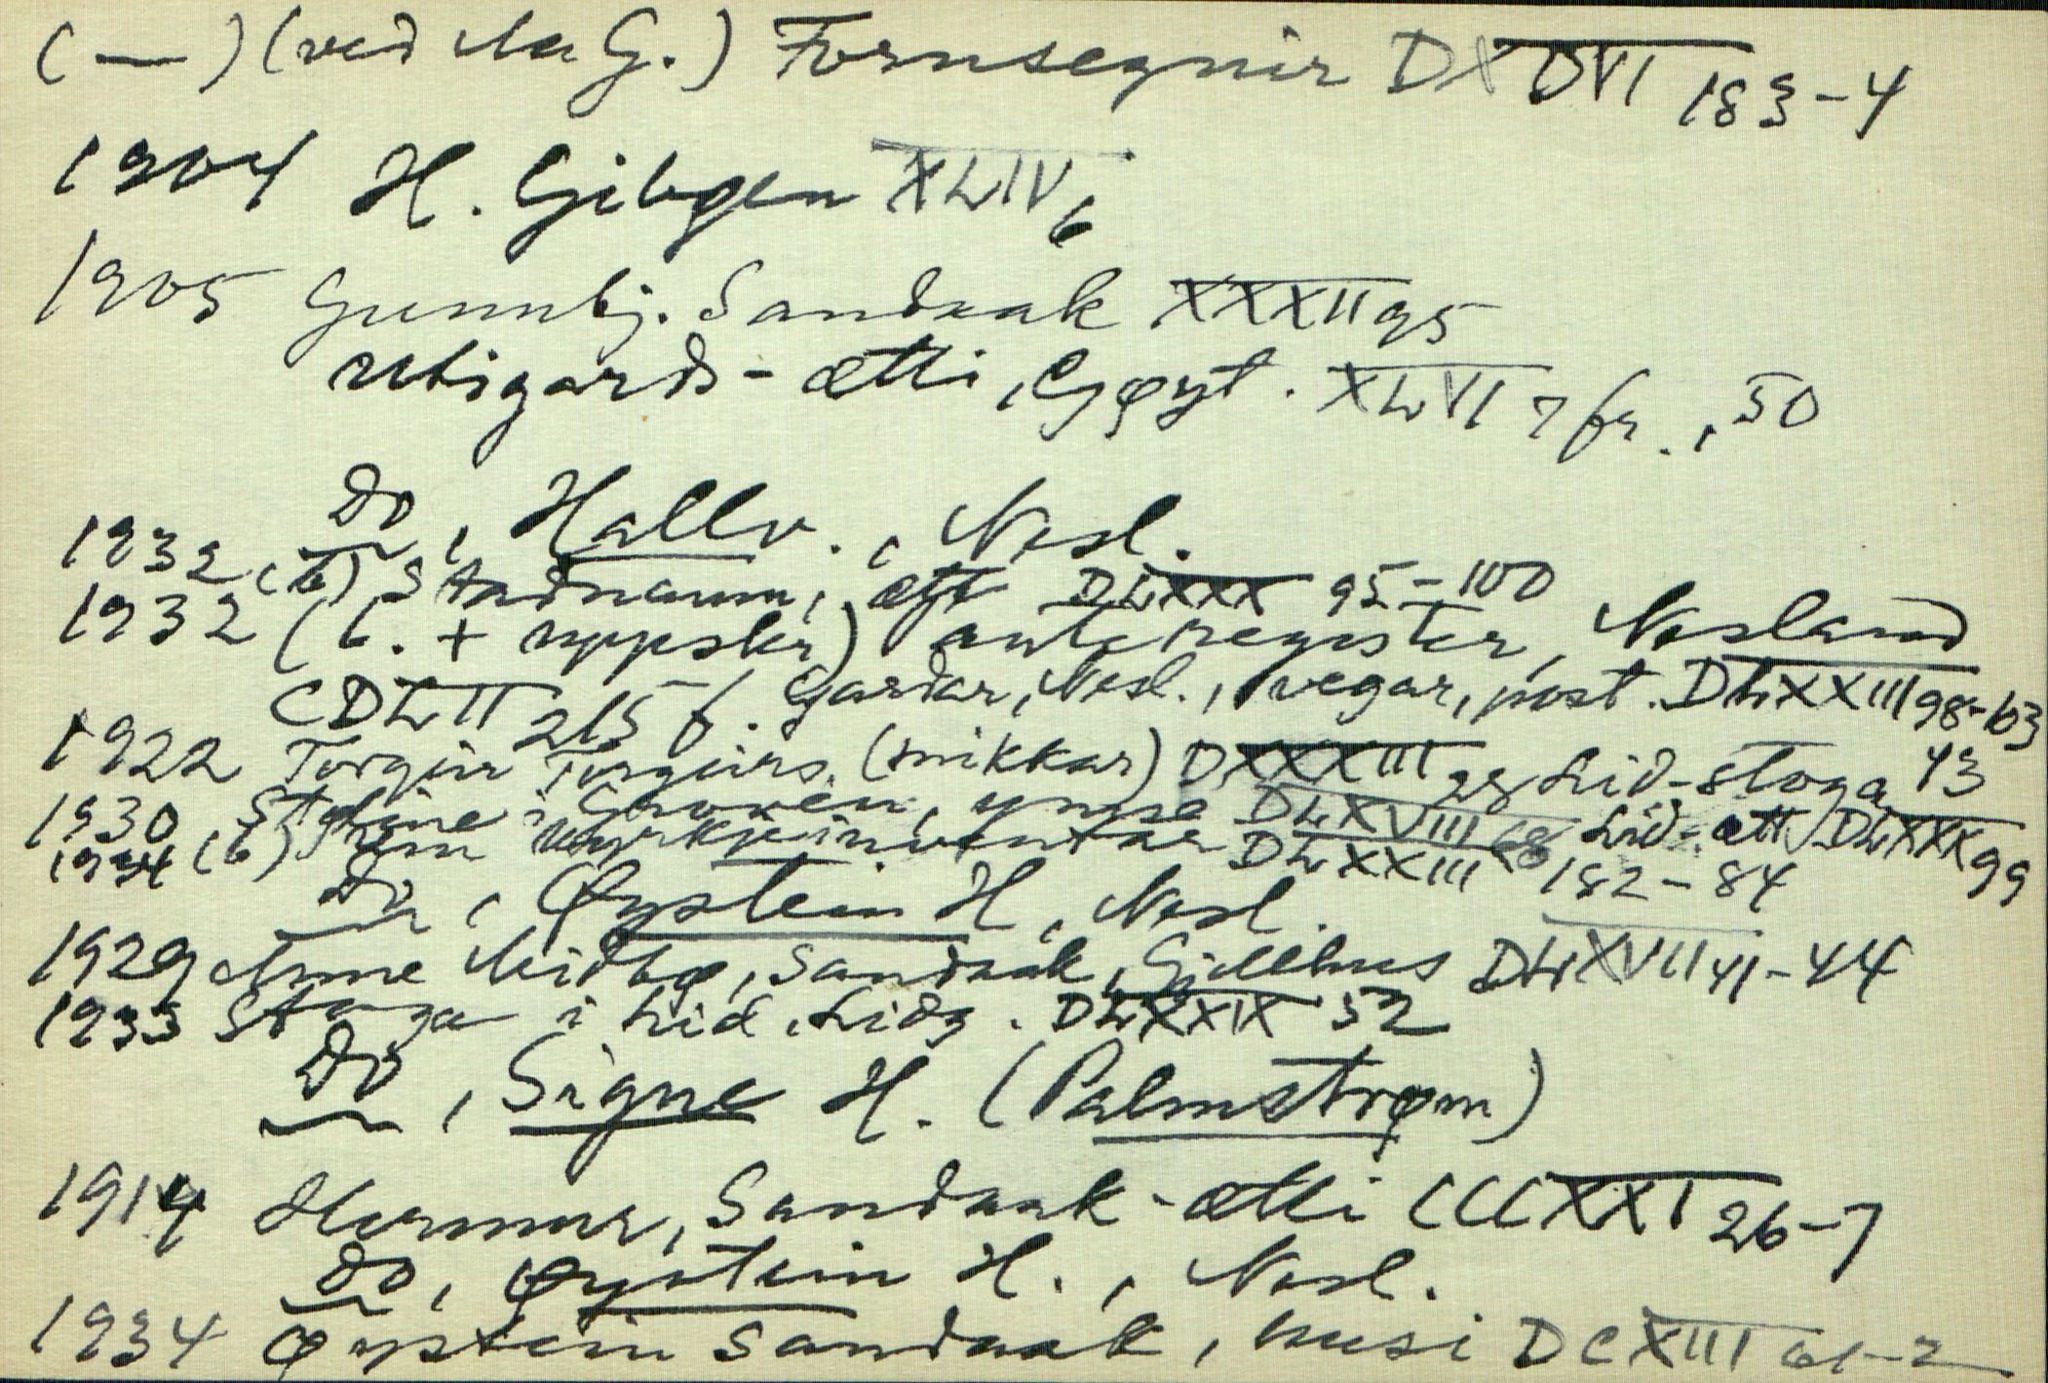 (—) (ved M. G.) Fornsegnir DXDVI 183-4
1904 H. Gibøen XLIV 6
1905 Gunnbj. Sandaak XXXII 95
Utigards-ætti, Gøyt. XLVI 7 fr., 50
Do, Hallv., Nesl.
1932 (b) Stadnamn, ætt DLXXX 95-100
1932 (b. + uppskr) register, Nesland
CDLII 215 f. Gardar, Nesl., vegar, post. DLXXIII 98-103
1922 Torgeir Torgeirs. (snikkar) DXXXIII 28 Lid-stoga 43
1930 i Groven, ymse DLXVIII 68 Lid-ætt DLXXX 99
1934 (b) Um kyrkjeinventar DLXXIII 182-84
Do, Øystein H, Nesl.
1929 Anne Midbø, Sandaak, Gjellhus DLXVII 41-44
1933 Stoga i Lid, Lidg. DLXXIX 52
Do, Signe H. (Palmstrøm)
1914 Hermur, Sandaak-ætti CCCXXI 26-7
Do, Øystein H., Nesl.
1934 Øystein Sandaak, husi DCXIII 61-2